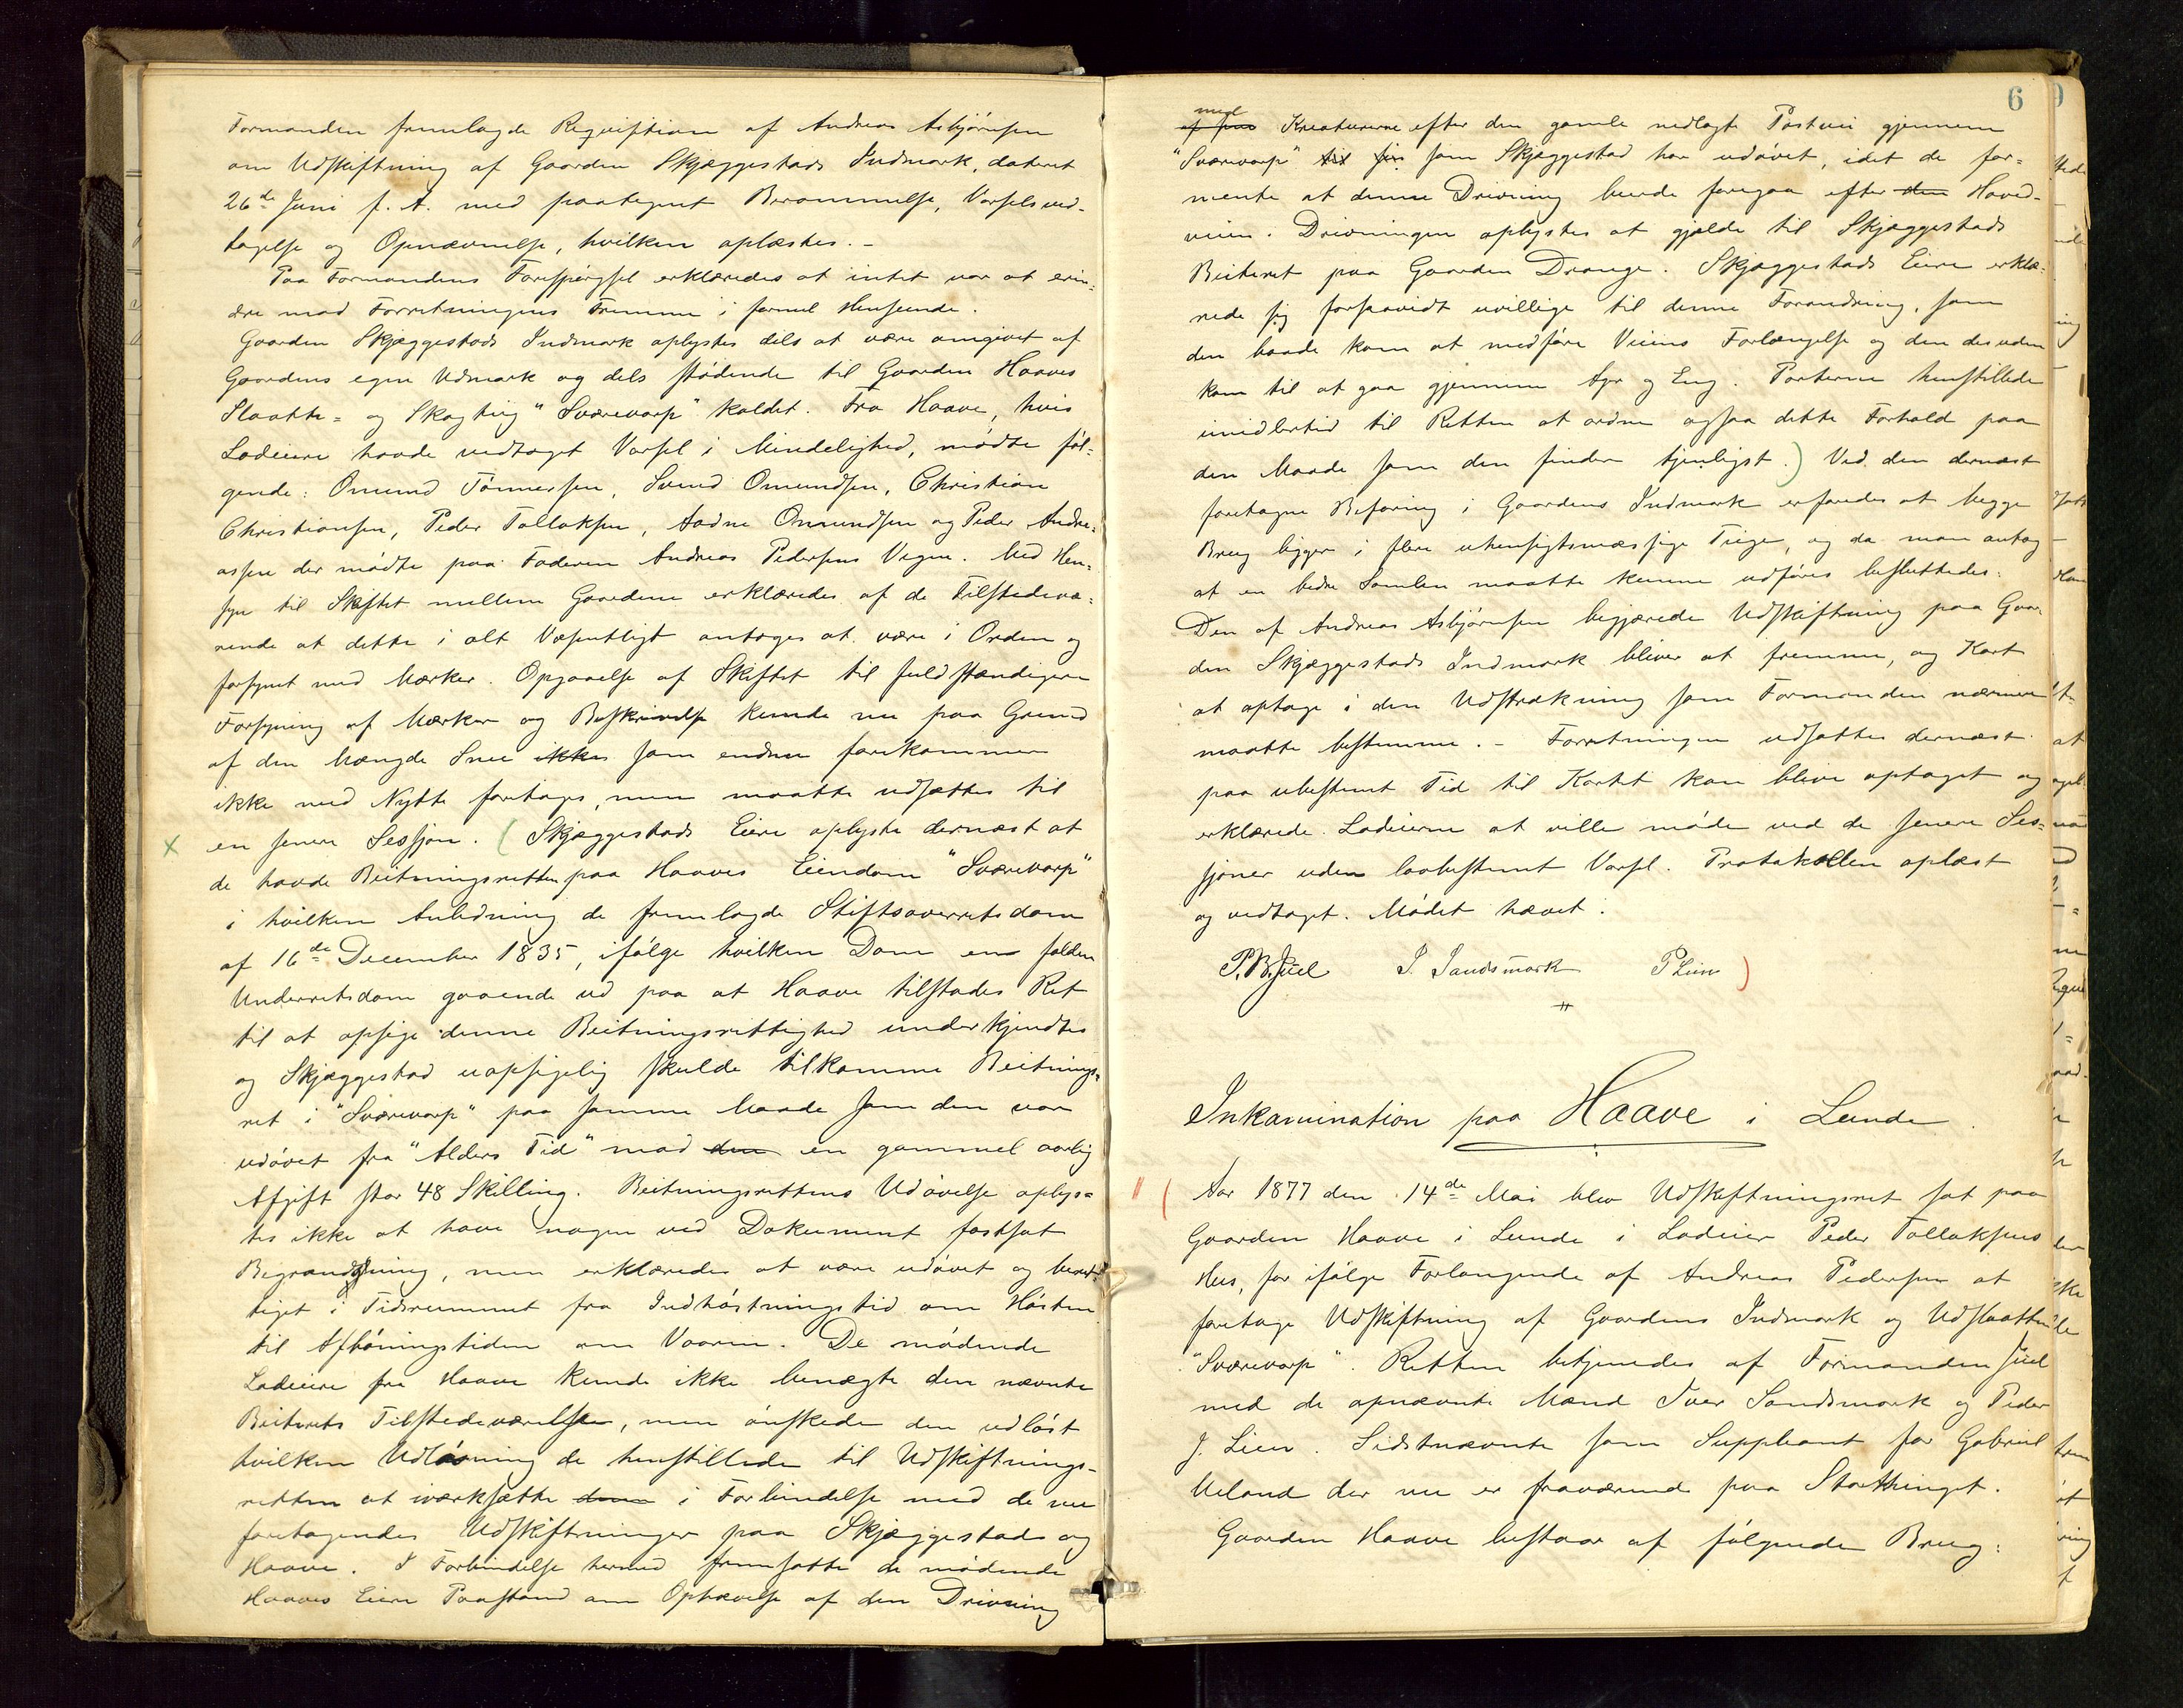 Formanden fremlagde Reqvisition af Andreas Asbjørnsen
om Udskiftning af Gaarden Skjæggestads Indmark, dateret
26de Juni f. A. med paategnet Berammelse, Varselsved-
tagelse og Opnævnelse, hvilken oplæstes. -
Paa Formandens Forespørgsel erklæredes at intet var at erin-
dre mod Forretningens Fremme i formel Henseende.
Gaarden Skjæggestads Indmark oplystes dels at være omgivet af
Gaardens egen Udmark og dels stødende til Gaarden Haaves
Slaatte- og Skogteig "Sværevarp" kaldet. Fra Haave, hvis
Lodeiere havde vedtaget Varsel i Mindelighed, mødte føl-
gende: Omund Tønnessen, Svend Omundsen, Christian
Christiansen, Peder Tollaksen, Aadne Omundsen og Peder Andre-
assen der mødte paa Faderen Andreas Pedersens Vegne. Med Hen-
syn til Skiftet mellem Gaardene erklæredes af de Tilstedevæ-
rende at dette i alt Væsentligt antages at være i Orden og
forsynet med Mærker. Opgaaelse af Skiftet til fuldstændigere
Forsyning af Mærker og Beskrivelse kunde nu paa Grund
af den Mængde Snee ikke som endnu forekommer
ikke med Nytte foretages, men maatte udsættes til
x en senere Sessjon. (Skjæggestads Eiere oplyste dernæst at
de havde Beitningsretten paa Haaves Eiendom "Sværevarp"
i hvilken Anledning de fremlagde Stiftsoverretsdom
af 16de December 1835, ifølge hvilken Dom en falden
Underretsdom gaaende ud paa at Haave tilstodes Ret
til at opsige denne Beitningsrettighed underkjendtes
og Skjæggestad uopsigelig skulde tilkomme Beitnings-
ret i "Sværevarp" paa samme Maade som den var
udøvet fra "Alders Tid" mod den en gammel aarlig
Afgift stor 48 Skilling. Beitningsrettens Udøvelse oplys-
tes ikke at have nogen ved Dokument fastsat
Begrændsning, men erklæredes at være udøvet og beret-
tiget i Tidsrummet fra Indhøstningstid om Høsten
til Afhøiningstiden om Vaaren. De mødende
Lodeiere fra Haave kunde ikke benægte den nævnte
Beiterets Tilstedeværelse, men ønskede den udløst
hvilken Udløsning de henstillede til Udskiftnings-
retten at iværksætte denne i Forbindelse med de nu
foretagendes Udskiftninger paa Skjæggestad og
Haave. I Forbindelse hermed fremsatte de mødende
Haaves Eiere Paastand om Ophævelse af den Drivning
6
med
af sine Kreaturerne efter den gamle nedlagte Postvei gjennem
"Sværevarp" som Skjæggestad har udøvet, idet de for-
mente at denne Drivning burde foregaa efter den Hoved-
veien. Drivningen oplystes at gjælde til Skjæggestads
Beiteret paa Gaarden Drange. Skjæggestads Eiere erklæ-
rede sig forsaavidt uvillige til denne Forandring, som
den baade kom at medføre Veiens Forlængelse og den desuden
kom til at gaa gjennem Ager og Eng. Parterne henstillede
imidlertid til Retten at ordne ogsaa dette Forhold paa
den Maade som den finder tjenligst.) Ved den dernæst
foretagne Befaring i Gaardens Indmark erfaredes at begge
Brug ligger i flere uhensigtsmæssige Teige, og da man antog
at en bedre Samlen maatte kunne udføres besluttedes:
Den af Andreas Asbjørnsen begjærede Udskiftning paa Gaar-
den Skjæggestads Indmark bliver at fremme, og Kart
at optage i den Udstrækning som Formanden nærmere
maatte bestemme. - Forretningen udsattes dernæst
paa ubestemt Tid til Kartet kan blive optaget og
erklærede Lodeierne at ville møde ved de senere Ses-
sjoner uden lovbestemt Varsel. Protokollen oplæst
og vedtaget. Mødet hævet.
P. B. Juel I. Sandsmark P Lien )
Inkamination paa Haave i Lunde.
( Aar 1877 den 14de Mai blev Udskiftningsret sat paa
Gaarden Haave i Lunde i Lodeier Peder Tollaksens
Hus, for ifølge Forlangende af Andreas Pedersen at
foretage Udskiftning af Gaardens Indmark og Udslaatten
"Sværevarp". Retten betjenedes af Formanden Juel
med de opnævnte Mænd Iver Sandsmark og Peder
J. Lien. Sidstnævnte som Suppleant for Gabriel
Ueland der nu er fraværende paa Storthinget.
Gaarden Haave bestaar af følgende Brug: